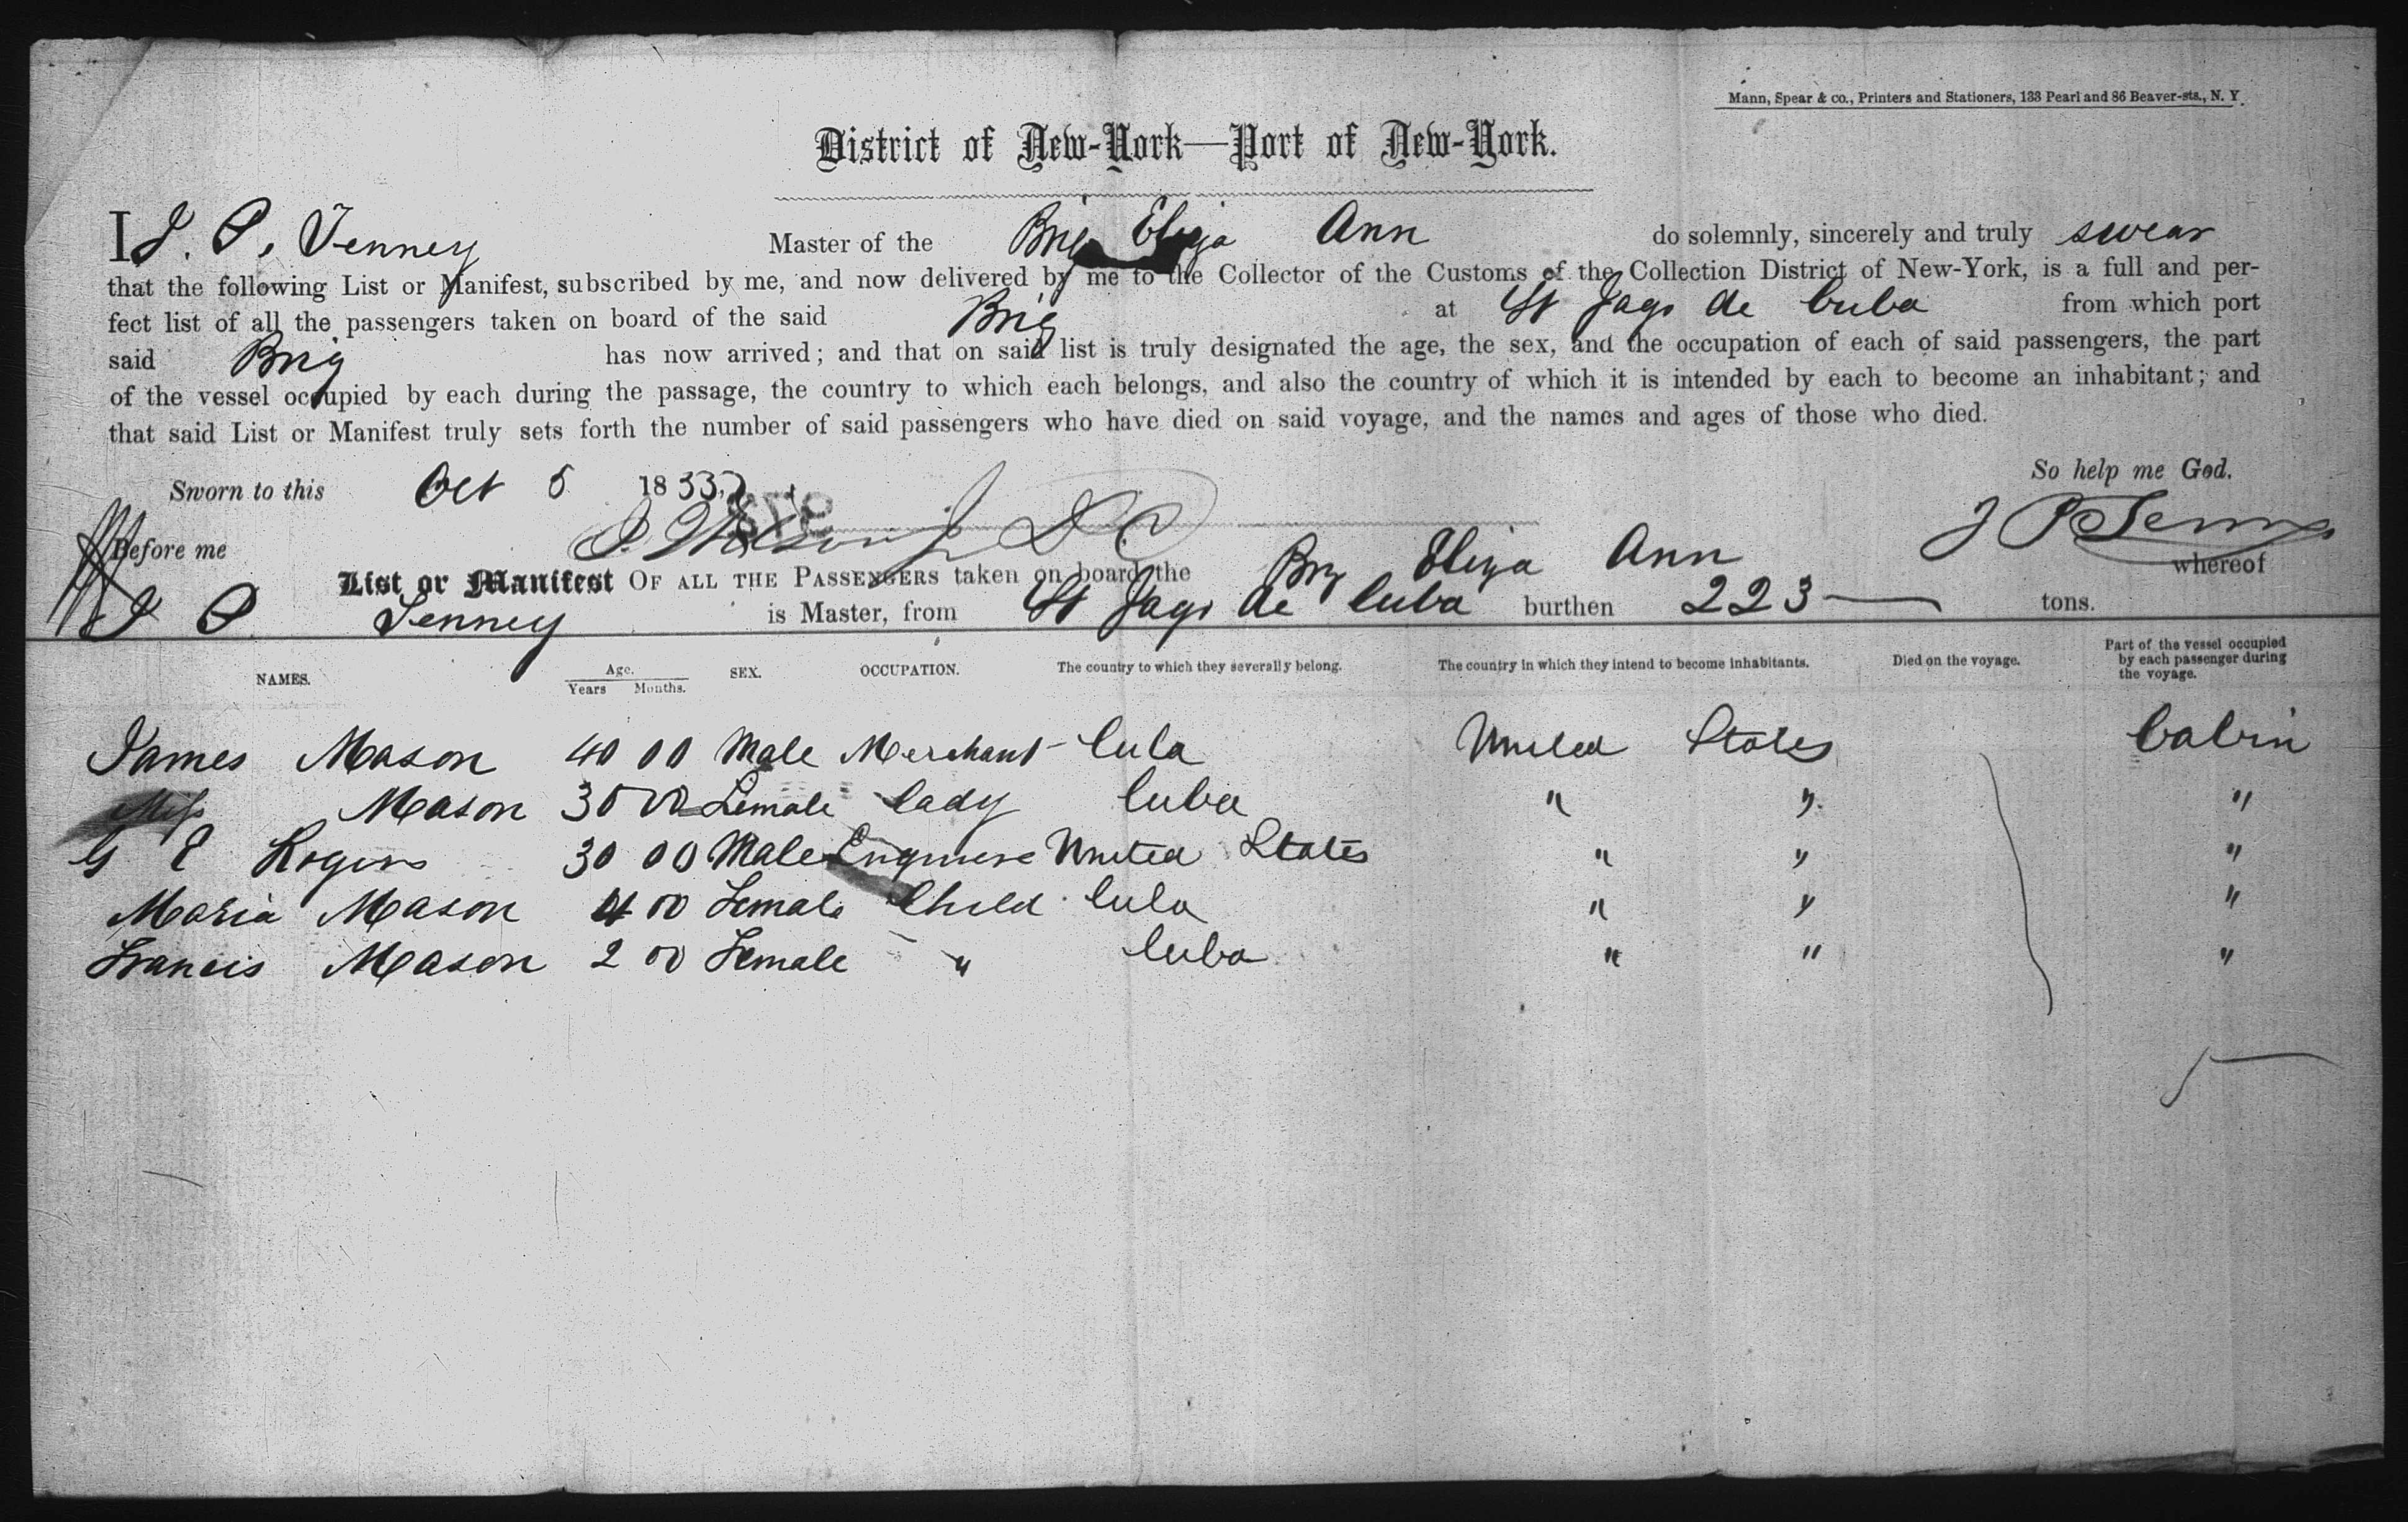 Mann, Spear & co., Printers and Stationers, 133 Pearl and 86 Beaver-sts., N. Y.
District of New-York—Port of New-York.
I J. P. Tenney Master of the Brig Eliza Ann do solemnly, sincerely and truly swear
that the following List or Manifest, subscribed by me, and now delivered by me to the Collector of the Customs of the Collection District of New-York, is a full and per-
fect list of all the passengers taken on board of the said Brig at St Jago de Cuba from which port
said Brig has now arrived; and that on said list is truly designated the age, the sex, and the occupation of each of said passengers, the part
of the vessel occupied by each during the passage, the country to which each belongs, and also the country of which it is intended by each to become an inhabitant; and
that said List or Manifest truly sets forth the number of said passengers who have died on said voyage, and the names and ages of those who died.
So help me God.
Sworn to this Oct 5 1853
J P Tenney
Before me
List or Manifest OF ALL THE PASSENGERS taken on board the Brig Eliza Ann whereof
J P Tenney is Master, from St Jago de Cuba burthen 223 tons.
NAMES. Age. Years Months. SEX. OCCUPATION. The country to which they severally belong. The country in which they intend to become inhabitants. Died on the voyage. Part of the vessel occupied by each passenger during the voyage.
James Mason 40 00 Male Merchant Cuba United States Cabin
Miss Mason 30 00 Female Lady Cuba " " "
G E Rogers 30 00 Male Engineer United States " " "
Maria Mason 4 00 Female Child Cuba " " "
Francis Mason 2 00 Female " Cuba " " "